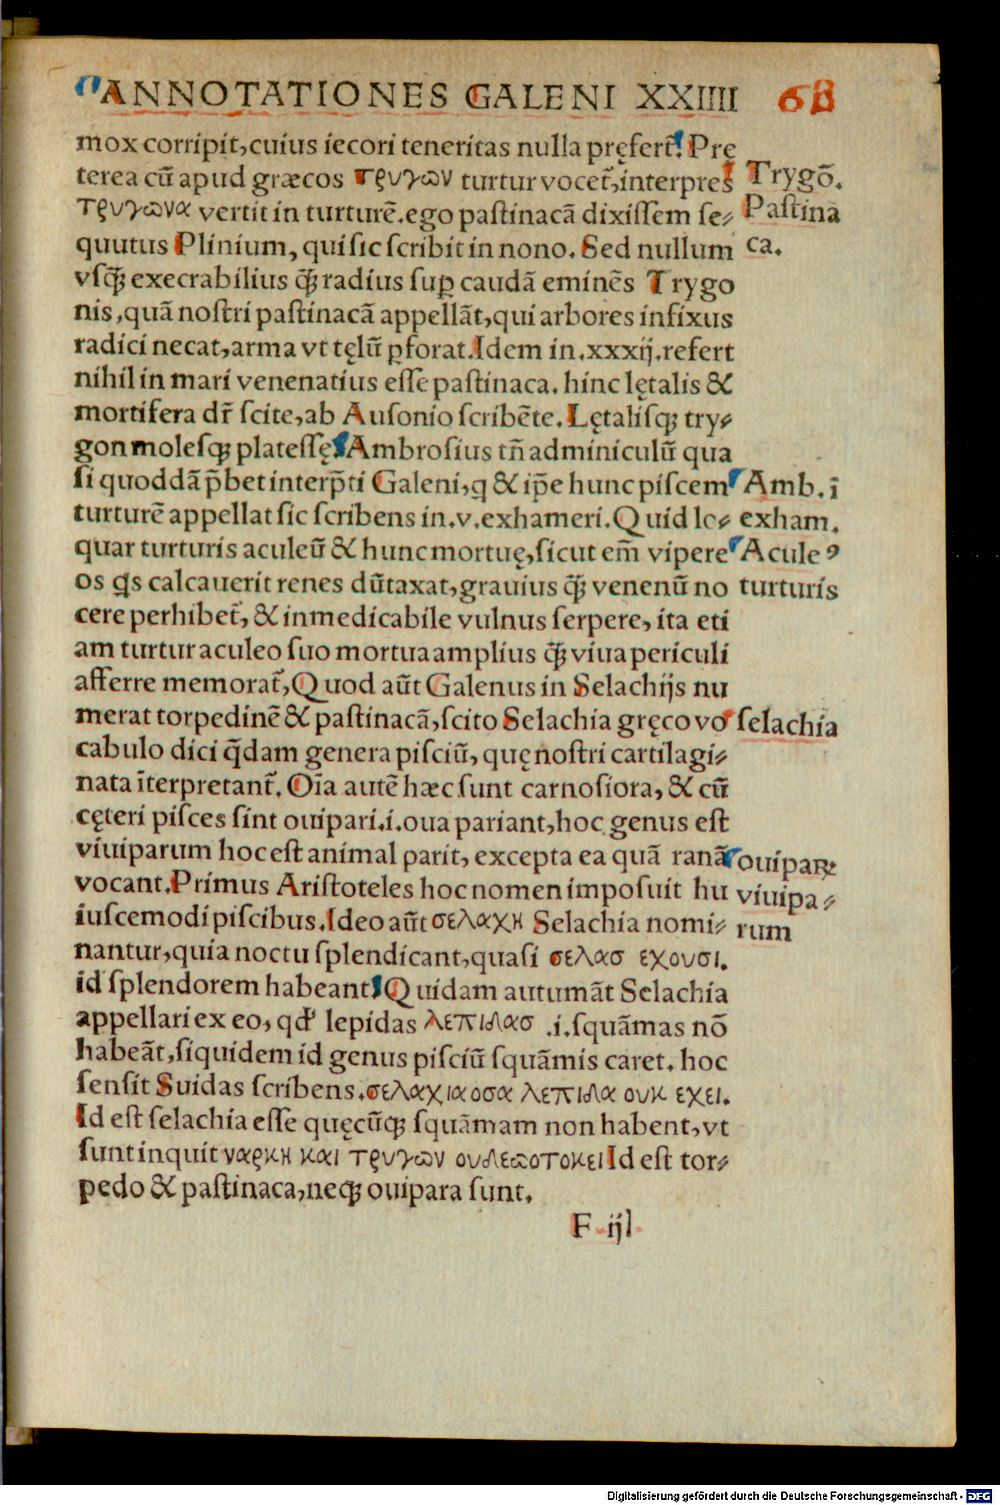 ANNOTATIONES GALENI XXIIII 68
mox corripit, cuius iecori teneritas nulla pręfert̃. Pre
terea cũ apud græcos τρυγων turtur vocet̃, interpres
τρυγωνα vertit in turturẽ. ego pastinacã dixissem se⸗
quutus Plinium, qui sic scribit in nono. Sed nullum
vsꝙ̃ execrabilius ꝙ̃ radius suꝑ caudã eminẽs Trygo
nis, quã nostri pastinacã appellãt, qui arbores infixus
radici necat, arma vt tęlũ ꝑforat. Idem in. xxxij. refert
nihil in mari venenatius esse pastinaca. hinc lętalis &
mortifera dr̃ scite, ab Ausonio scribẽte. Lętalisꝗ try⸗
gon molesꝗ platessę Ambrosius tñ adminiculũ qua
si quoddã p̃bet interp̃ti Galeni, q & ip̃e hunc piscem
turturẽ appellat sic scribens in. v. exhameri. Quid lo⸗
quar turturis aculeũ & hunc mortuę, sicut em̃ vipere
os q̃s calcauerit renes dũtaxat, grauius ꝙ̃ venenũ no
cere perhibet̃, & inmedicabile vulnus serpere, ita eti
am turtur aculeo suo mortua amplius ꝙ̃ viua periculi
afferre memorat̃, Quod aũt Galenus in Selachijs nu
merat torpedinẽ & pastinacã, scito Selachia gręco vo
cabulo dici q̃dam genera pisciũ, quę nostri cartilagi⸗
nata ĩterpretant̃. Oĩa autẽ hæc sunt carnosiora, & cũ
cęteri pisces sint ouipari. i. oua pariant, hoc genus est
viuiparum hoc est animal parit, excepta ea quã ranã
vocant. Primus Aristoteles hoc nomen imposuit hu
iuscemodi piscibus. Ideo aũt σελαχη Selachia nomi⸗
nantur, quia noctu splendicant, quasi σελασ εχουσι.
id splendorem habeant Quidam autumãt Selachia
appellari ex eo, qd' lepidas λεπιδασ .i. squãmas nõ
habeãt, siquidem id genus pisciũ squãmis caret. hoc
sensit Suidas scribens. σελαχια οσα λεπιδα ουκ εχει.
Id est selachia esse quęcũꝗ squãmam non habent, vt
sunt inquit ναρκη και τρυγων ουδε ωοτοκει Id est tor⸗
pedo & pastinaca, neꝗ ouipara sunt.
F iij
Trygõ.
Pastina
ca.
Amb. ĩ
exham.
Aculeꝰ
turturis
selachia
ouiparꝝ
viuipa⸗
rum
Digitalisierung gefördert durch die Deutsche Forschungsgemeinschaft - DFG